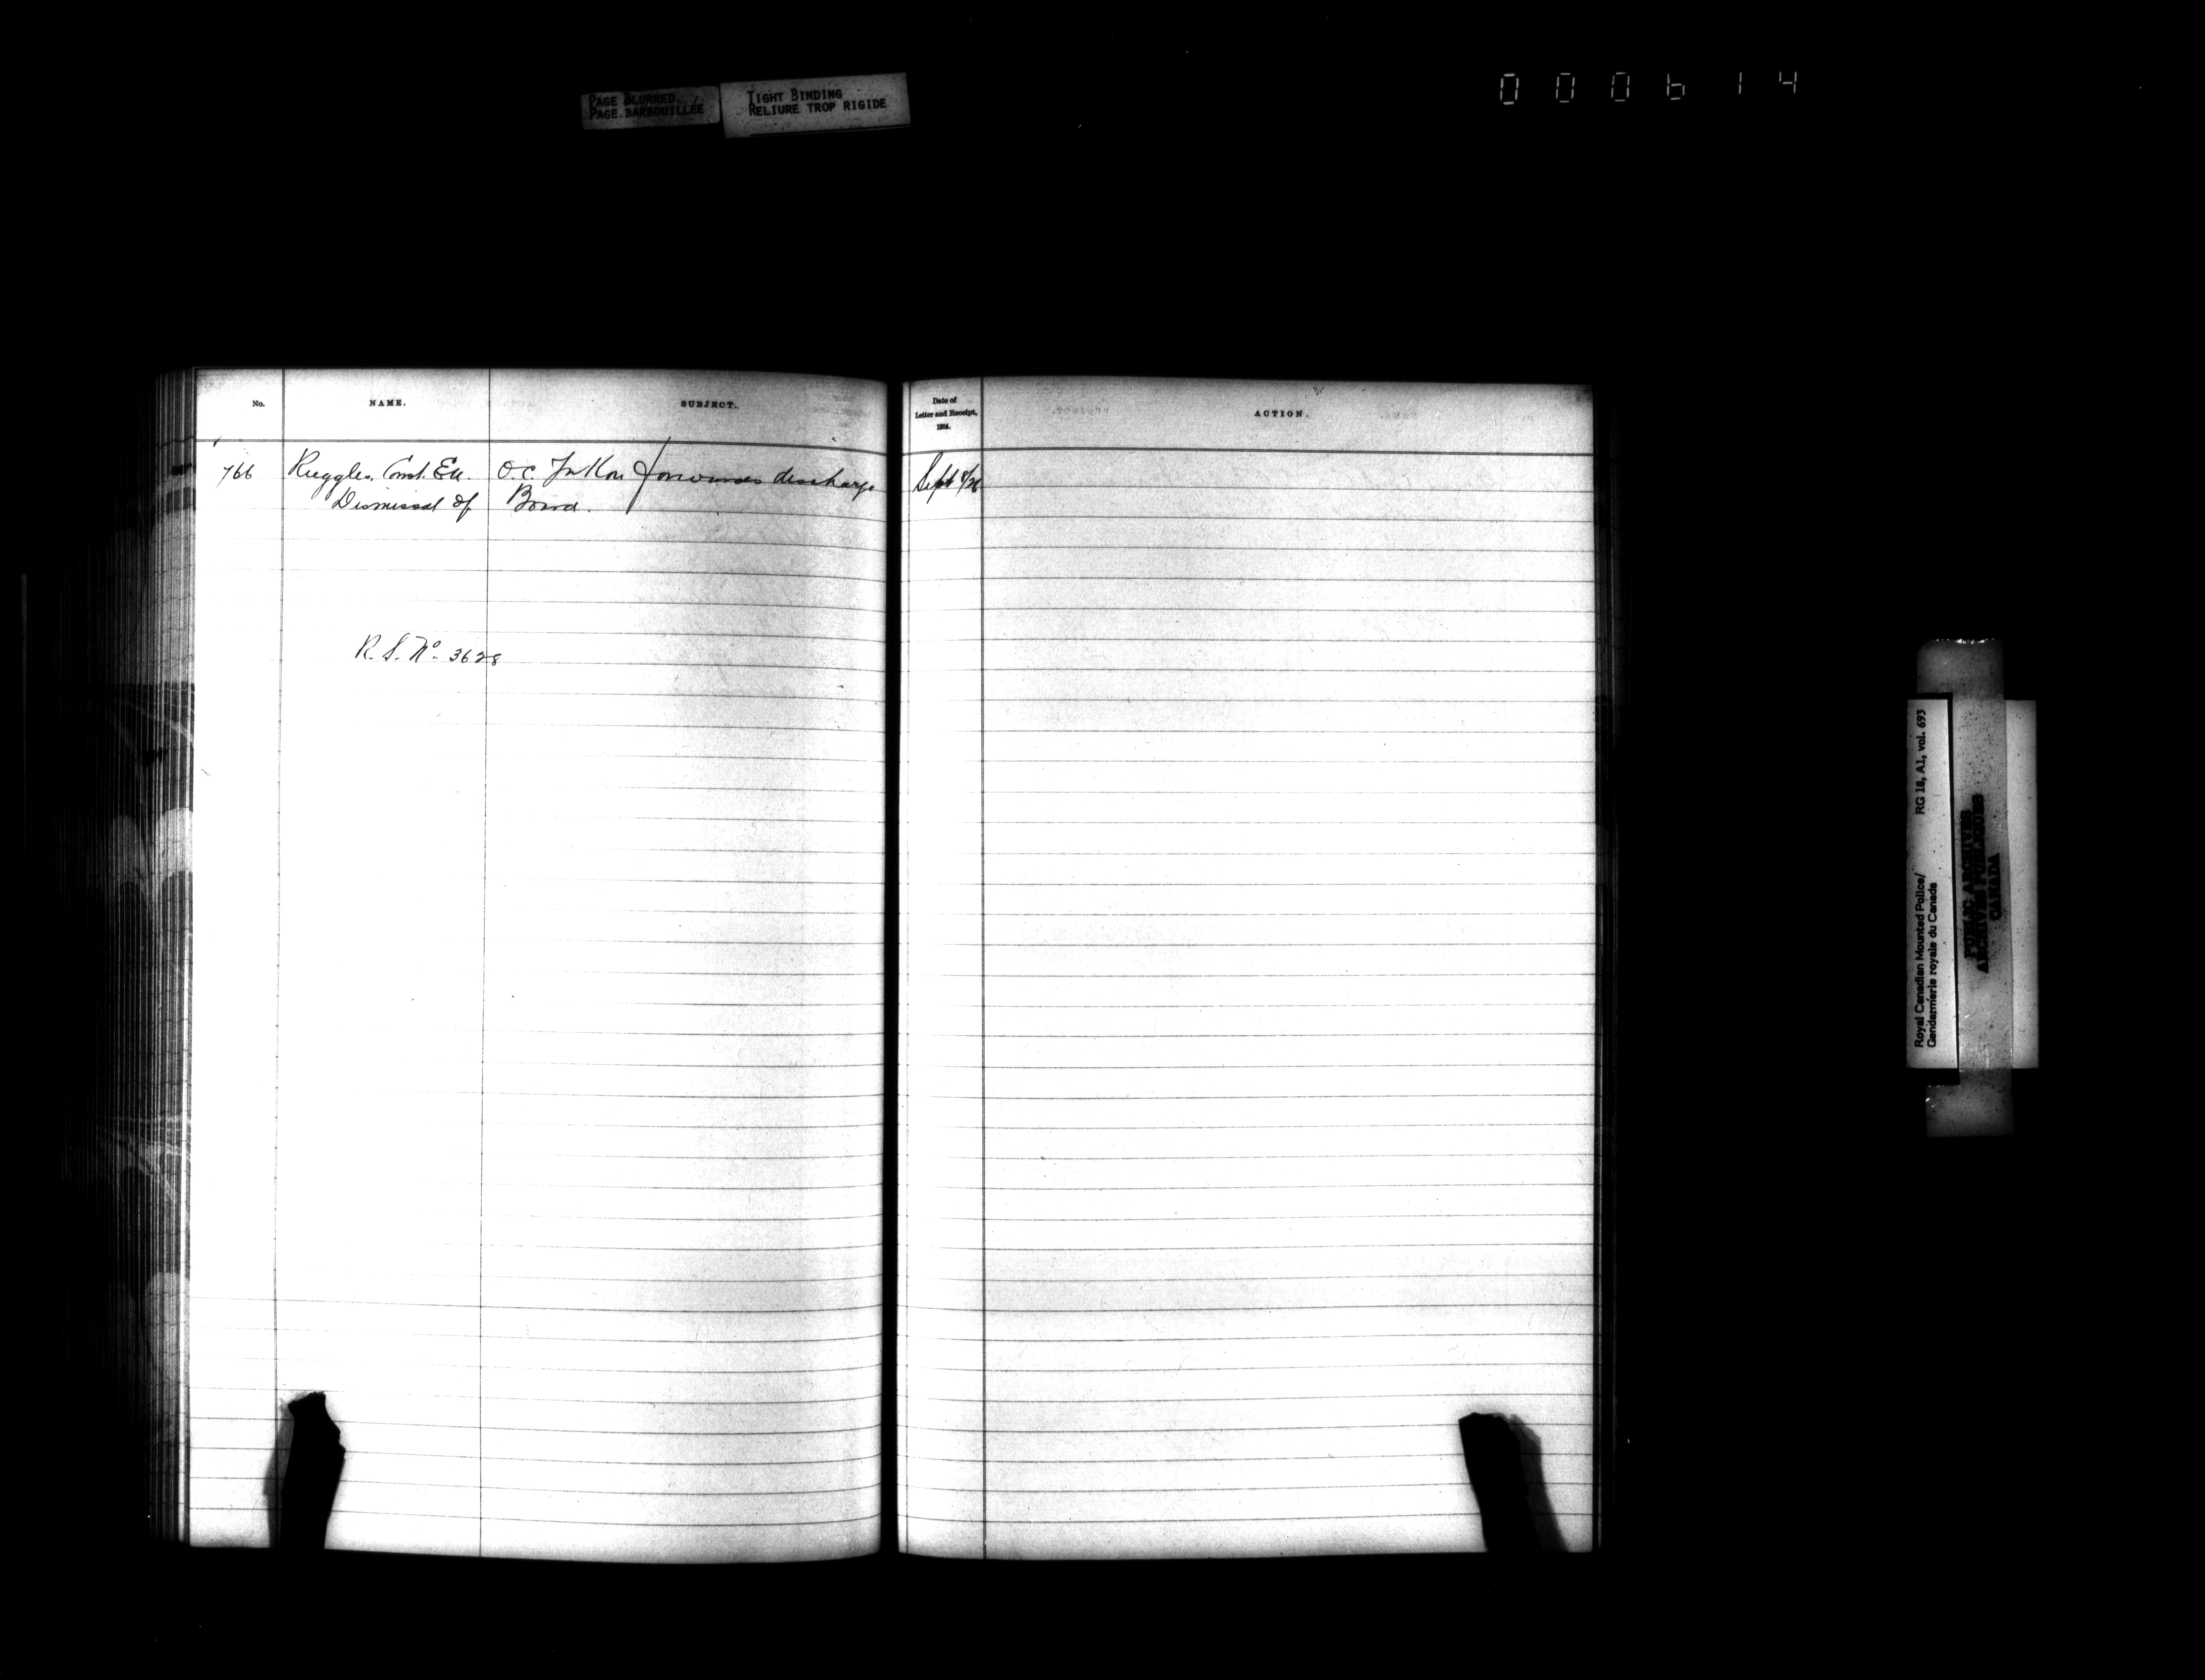 PAGE BLURRED
PAGE BARBOUILLEE
TIGHT BINDING
RELIURE TROP RIGIDE
000614
No.
NAME.
SUBJECT.
Date of
Letter and Receipt,
1904.
ACTION.
766
Ruggles, Const. E.A.
Dismissal of
O.C. Yukon forwards discharge
Board.
Sept 8/26
R.S. No. 3628
Royal Canadian Mounted Police/
Gendarmerie royale du Canada
RG 18, A1, vol. 693
PUBLIC ARCHIVES
ARCHIVES PUBLIQUES
CANADA